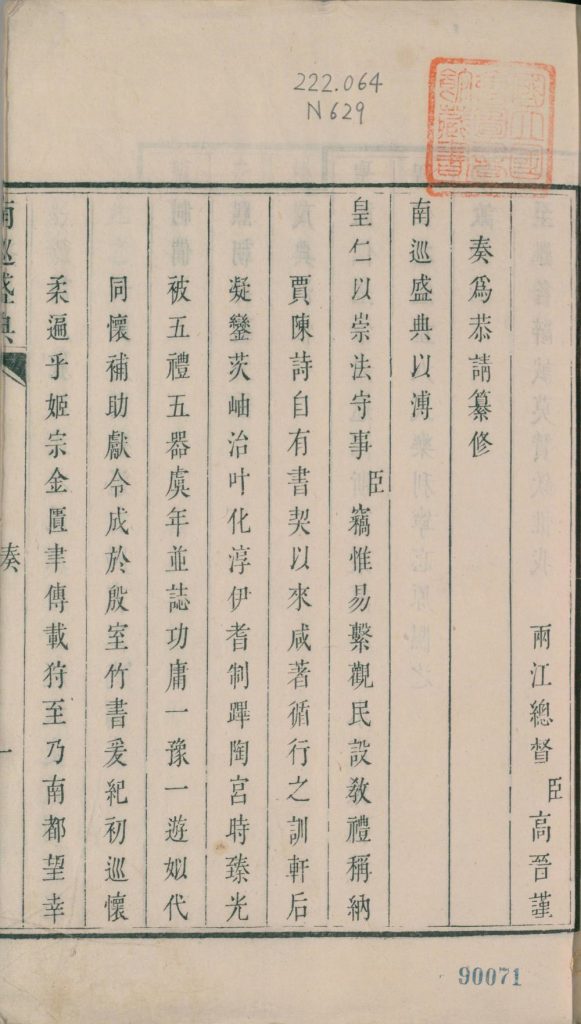 222.064
N629
國立國
會圖書
館藏書
兩江總督臣高晉謹
奏爲恭請纂修
南巡盛典以溥
皇仁以崇法守事臣竊惟易繫觀民設敎禮稱納
賈陳詩自有書契以來咸著循行之訓軒后
凝鑾茨岫治叶化淳伊耆制蹕陶宮時臻光
被五禮五器虞年並誌功庸一豫一遊姒代
同懷補助獻令成於殷室竹書爰紀初巡懷
柔遍乎姬宗金匱聿傳載狩至乃南都望幸
南巡盛典
奏
一
90071